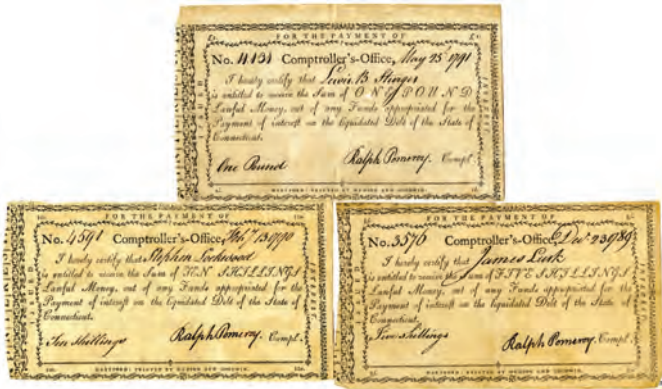 FOR THE PAYMENT OF
No. 4131 Comptroller's-Office, May 25th 1791
I hereby certify that Lewis B Stinger
is entitled to receive the Sum of ONE POUND
Lawful Money, out of any Funds appropriated for the
Payment of interest on the liquidated Debt of the State of
Connecticut.
One Pound Ralph Pomeroy. Compt.
HARTFORD: PRINTED BY HUDSON AND GOODWIN.
INTEREST
FOR THE PAYMENT OF
No. 4591 Comptroller's-Office, Feby 13 1790
I hereby certify that Stephen Lockwood
is entitled to receive the Sum of TEN SHILLINGS
Lawful Money, out of any Funds appropriated for the
Payment of interest on the liquidated Debt of the State of
Connecticut.
Ten Shillings Ralph Pomeroy. Compt.
HARTFORD: PRINTED BY HUDSON AND GOODWIN.
INTEREST
FOR THE PAYMENT OF
No. 3576 Comptroller's-Office, Decr 23 1789
I hereby certify that James Lusk
is entitled to receive the Sum of FIVE SHILLINGS
Lawful Money, out of any Funds appropriated for the
Payment of interest on the liquidated Debt of the State of
Connecticut.
Five Shillings Ralph Pomeroy. Compt.
HARTFORD: PRINTED BY HUDSON AND GOODWIN.
INTEREST